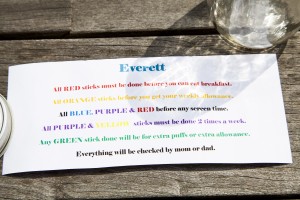 Everett
All RED sticks must be done before you can eat breakfast.
All ORANGE sticks before you get your weekly allowance.
All BLUE, PURPLE & RED before any screen time.
All PURPLE & YELLOW sticks must be done 2 times a week.
Any GREEN stick done will be for extra puffs or extra allowance.
Everything will be checked by mom or dad.